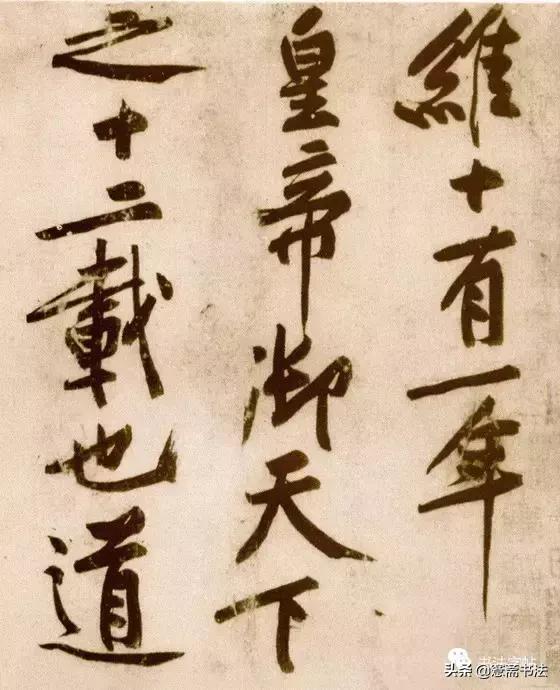 維十有一年
皇帝御天下
之十二載也道
书法字帖
头条@慧斋书法